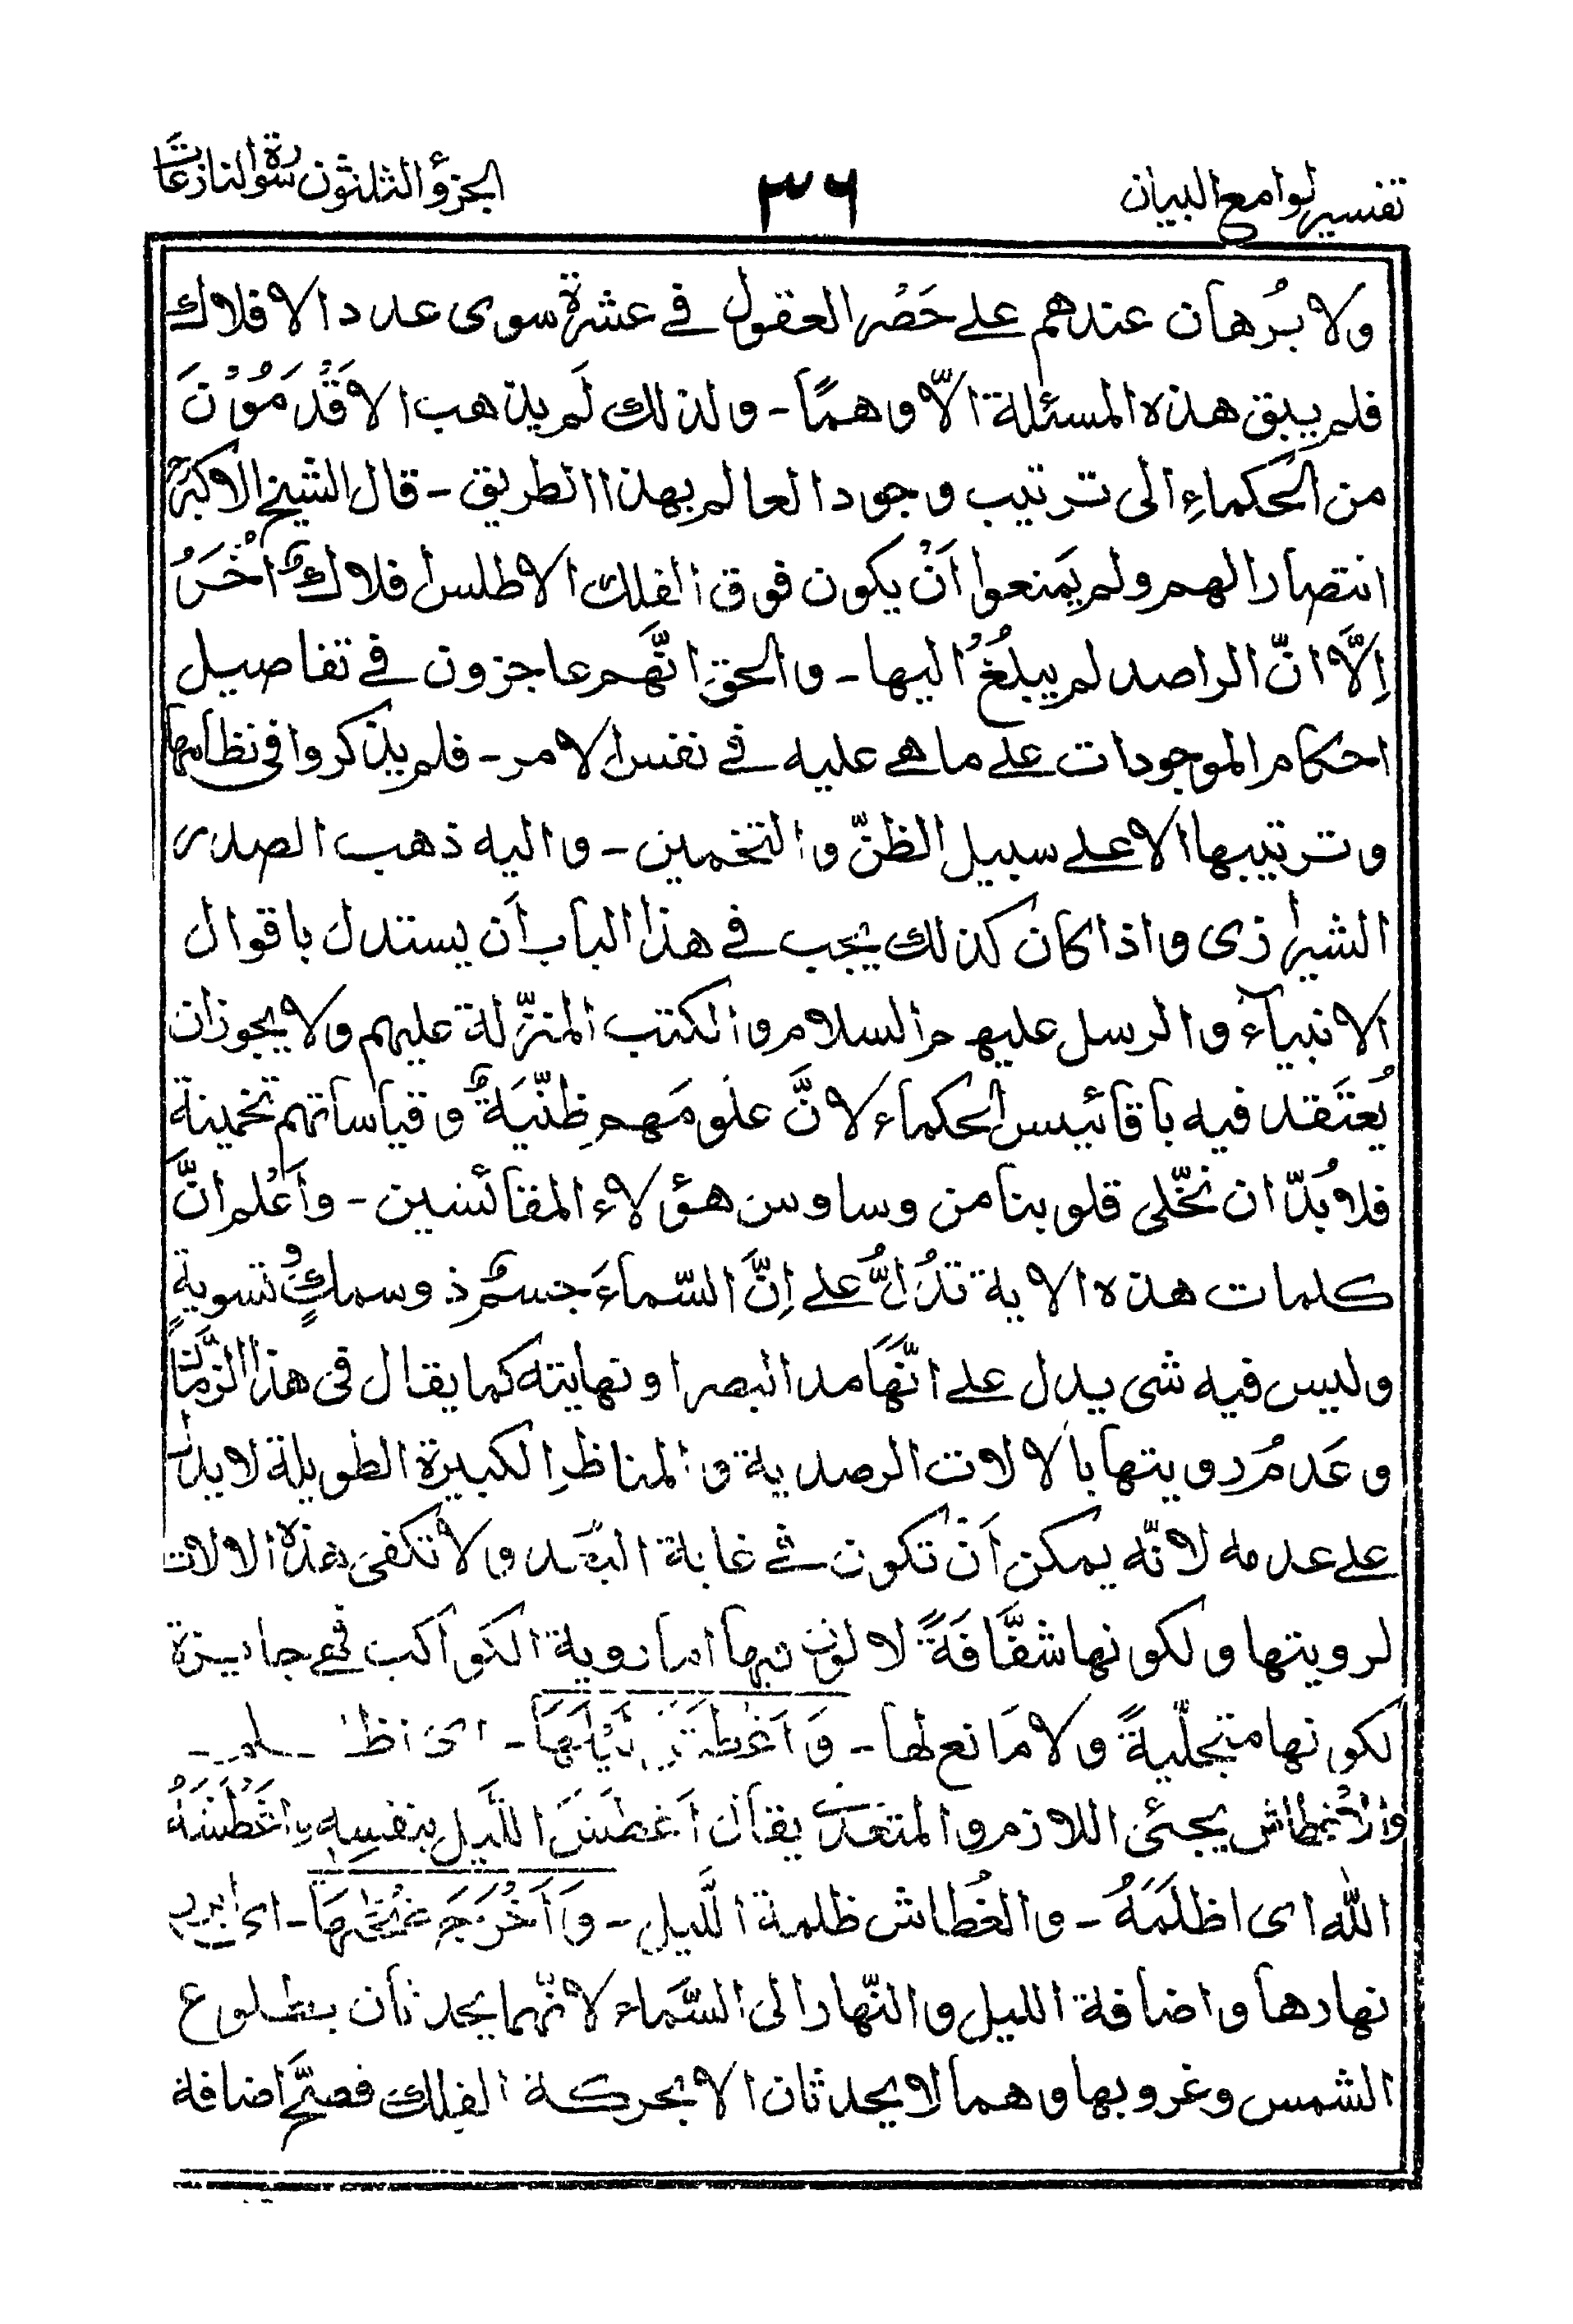 تفسير لوامع البيان ٣٦ الجزؤ الثلثون سورة النازعات
ولا بُرهان عندهم على حَصْر العقول في عشرة سوى عدد الافلاك
فلم يبق هذه المسئلة الّا وهمًا - ولذلك لَم يذهب الاَقْدَمُوْنَ
من الحكماءِ الى ترتيب وجود العالم بهذا الطريق - قال الشيخ الاكبرؒ
انتصارا لهم ولم يَمنعوا اَنْ يكون فوق الفلك الاطلس افلاكٌ اُخَرُ
اِلَّا انّ الراصد لم يبلُغْ اليها - والحق انَّهم عاجزون في تفاصيل
احكام الموجودات على ما هي عليه في نفس الامر - فلم يذكروا في نظامها
وترتيبها الا على سبيل الظنّ والتخمين - واليه ذهب الصدر
الشيرازى واذا كان كذلك يجب في هذا الباب اَن يستدل باقوال
الانبيآء والرسل عليهم السلام والكتب المنزّلة عليهم ولا يجوز ان
يُعتَقد فيه باقائيس الحكماء لانَّ علومَهم ظِنّيَةٌ وقياساتهم تخمينة
فلا بُدّ ان نخّلى قلوبنا من وساوس هؤلاء المقائسين - واَعْلم انَّ
كلمات هذه الاية تدُلُّ على اِنَّ السّماءَ جسمٌ ذو سمكٍ وتسويةٍ
وليس فيه شى يدل على انّهَا مد البصر او نهايته كما يقال في هذا الزَّمَان
وعَدمُ رويتها بالالات الرصدية والمناظرِ الكبيرة الطويلة لا يدل
على عدمه لانّه يمكن اَنْ تكون في غاية البُعد ولا تكفى هذه الالات
لرويتها ولكونها شفَّافَةً لا لون فيها اما روية الكواكب فهى جايزة
لكونها متجلّيةً ولا مَانع لها - وَاَغْطَشَ لَيْلَهَا - اى اظلم -
والاغطاش يجئى اللازم والمتعدى يقال اَغطَشَ اللَّيل بنفسِهِ واَغْطَشَهُ
الله اى اظلَمَهُ - والغُطاش ظلمة اللَّيل - وَاَخْرَجَ ضُحٰهَا - اى ابرز
نهارها واضافة الليل والنّهار الى السَّماء لانّهما يحدثان بطلوع
الشمس وغروبها وهما لا يحدثان الا بحركة الفلك فصحَّ اضافة